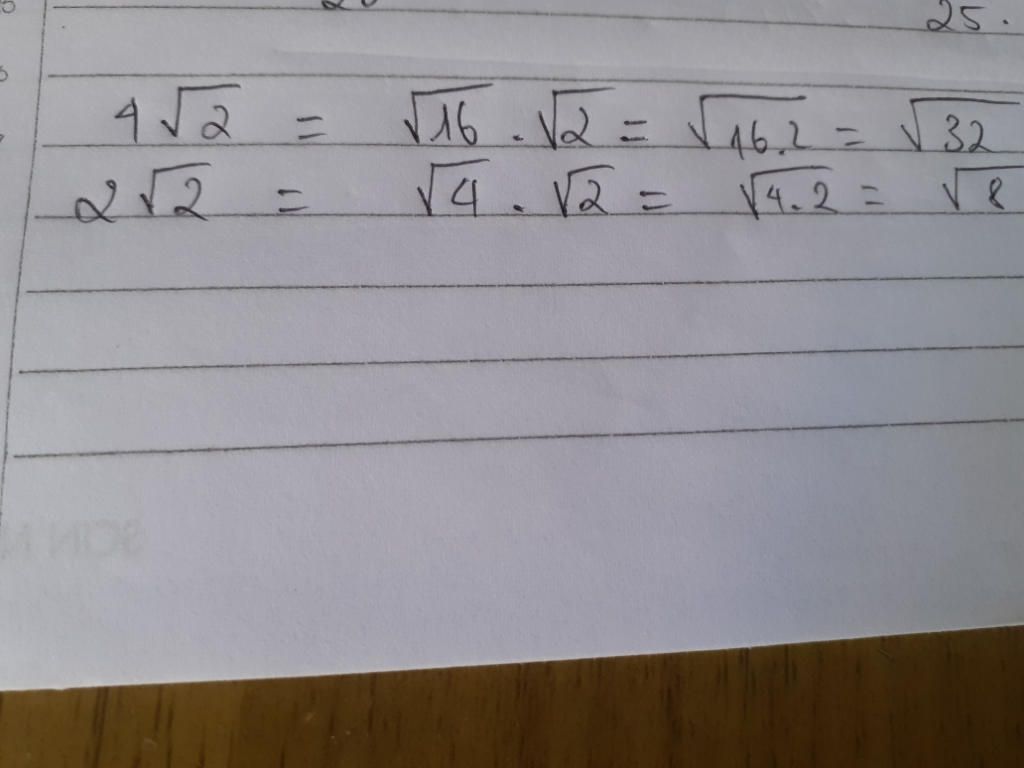 25.
4√2 = √16 . √2 = √16.2 = √32
2√2 = √4 . √2 = √4.2 = √8